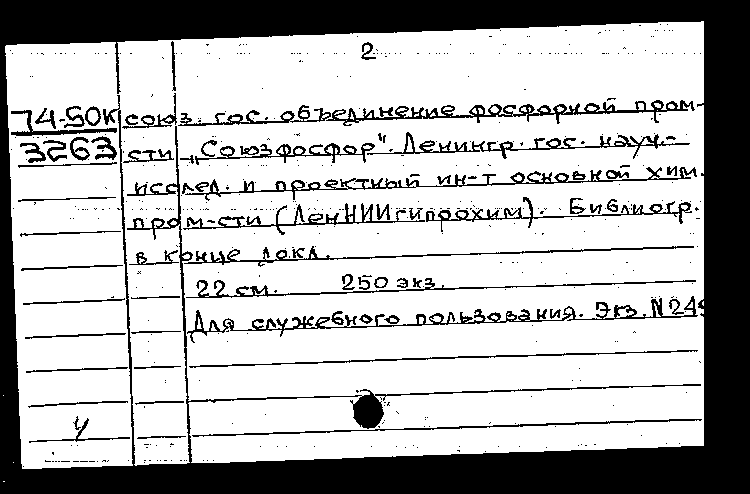 2
74-50к союз. гос. объединение фосфорной пром-
3263 сти „Союзфосфор". Ленингр. гос. науч.-
исслед. и проектный ин-т основной хим.
пром-сти (ЛенНИИгипрохим). Библиогр.
в конце докл.
22 см. 250 экз.
Для служебного пользования. Экз. N 249